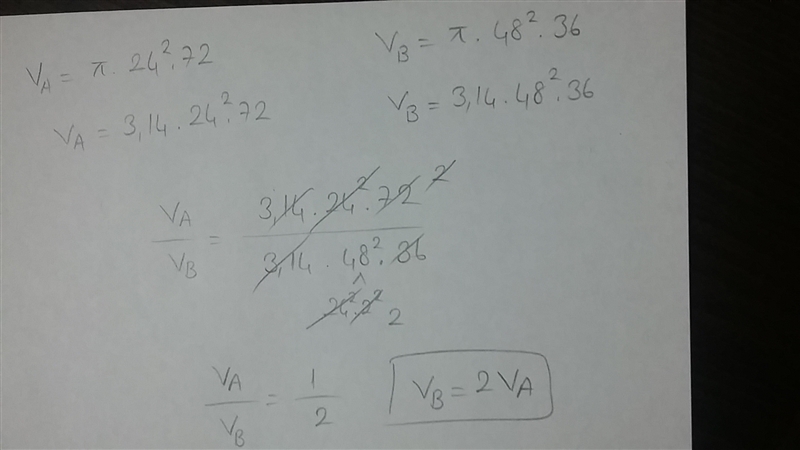 V_A = π · 24² · 72
V_B = π · 48² · 36
V_A = 3,14 · 24² · 72
V_B = 3,14 · 48² · 36
V_A / V_B = 3,14 · 24² · 72 2 / 3,14 · 48² · 36
24² · 2² 2
V_A / V_B = 1 / 2
V_B = 2 V_A